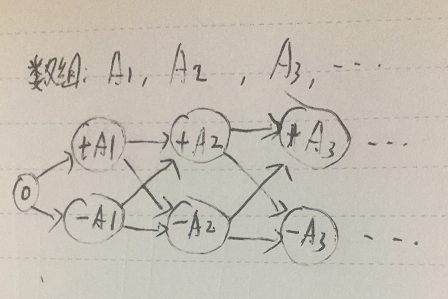 数组: A1, A2 , A3, ...
+A1 +A2 +A3 ...
0
-A1 -A2 -A3 ...